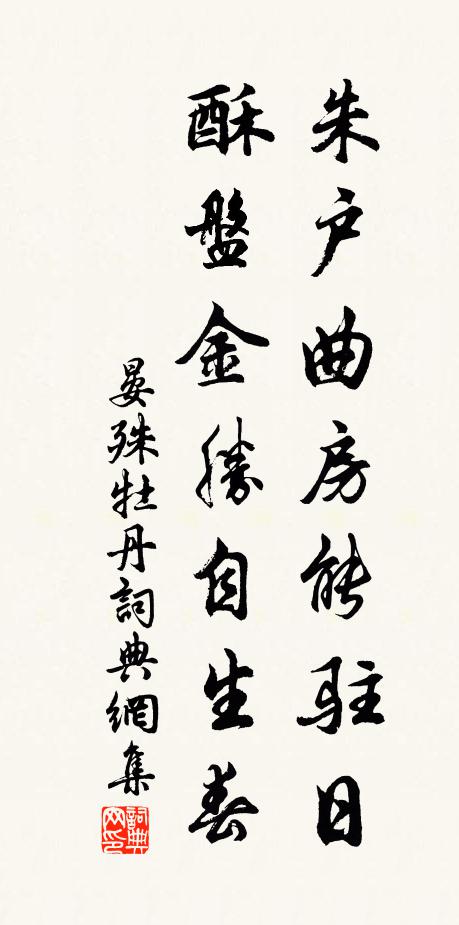 朱户曲房能駐日
酥盤金勝自生春
晏殊牡丹詞典網集
詞典网印